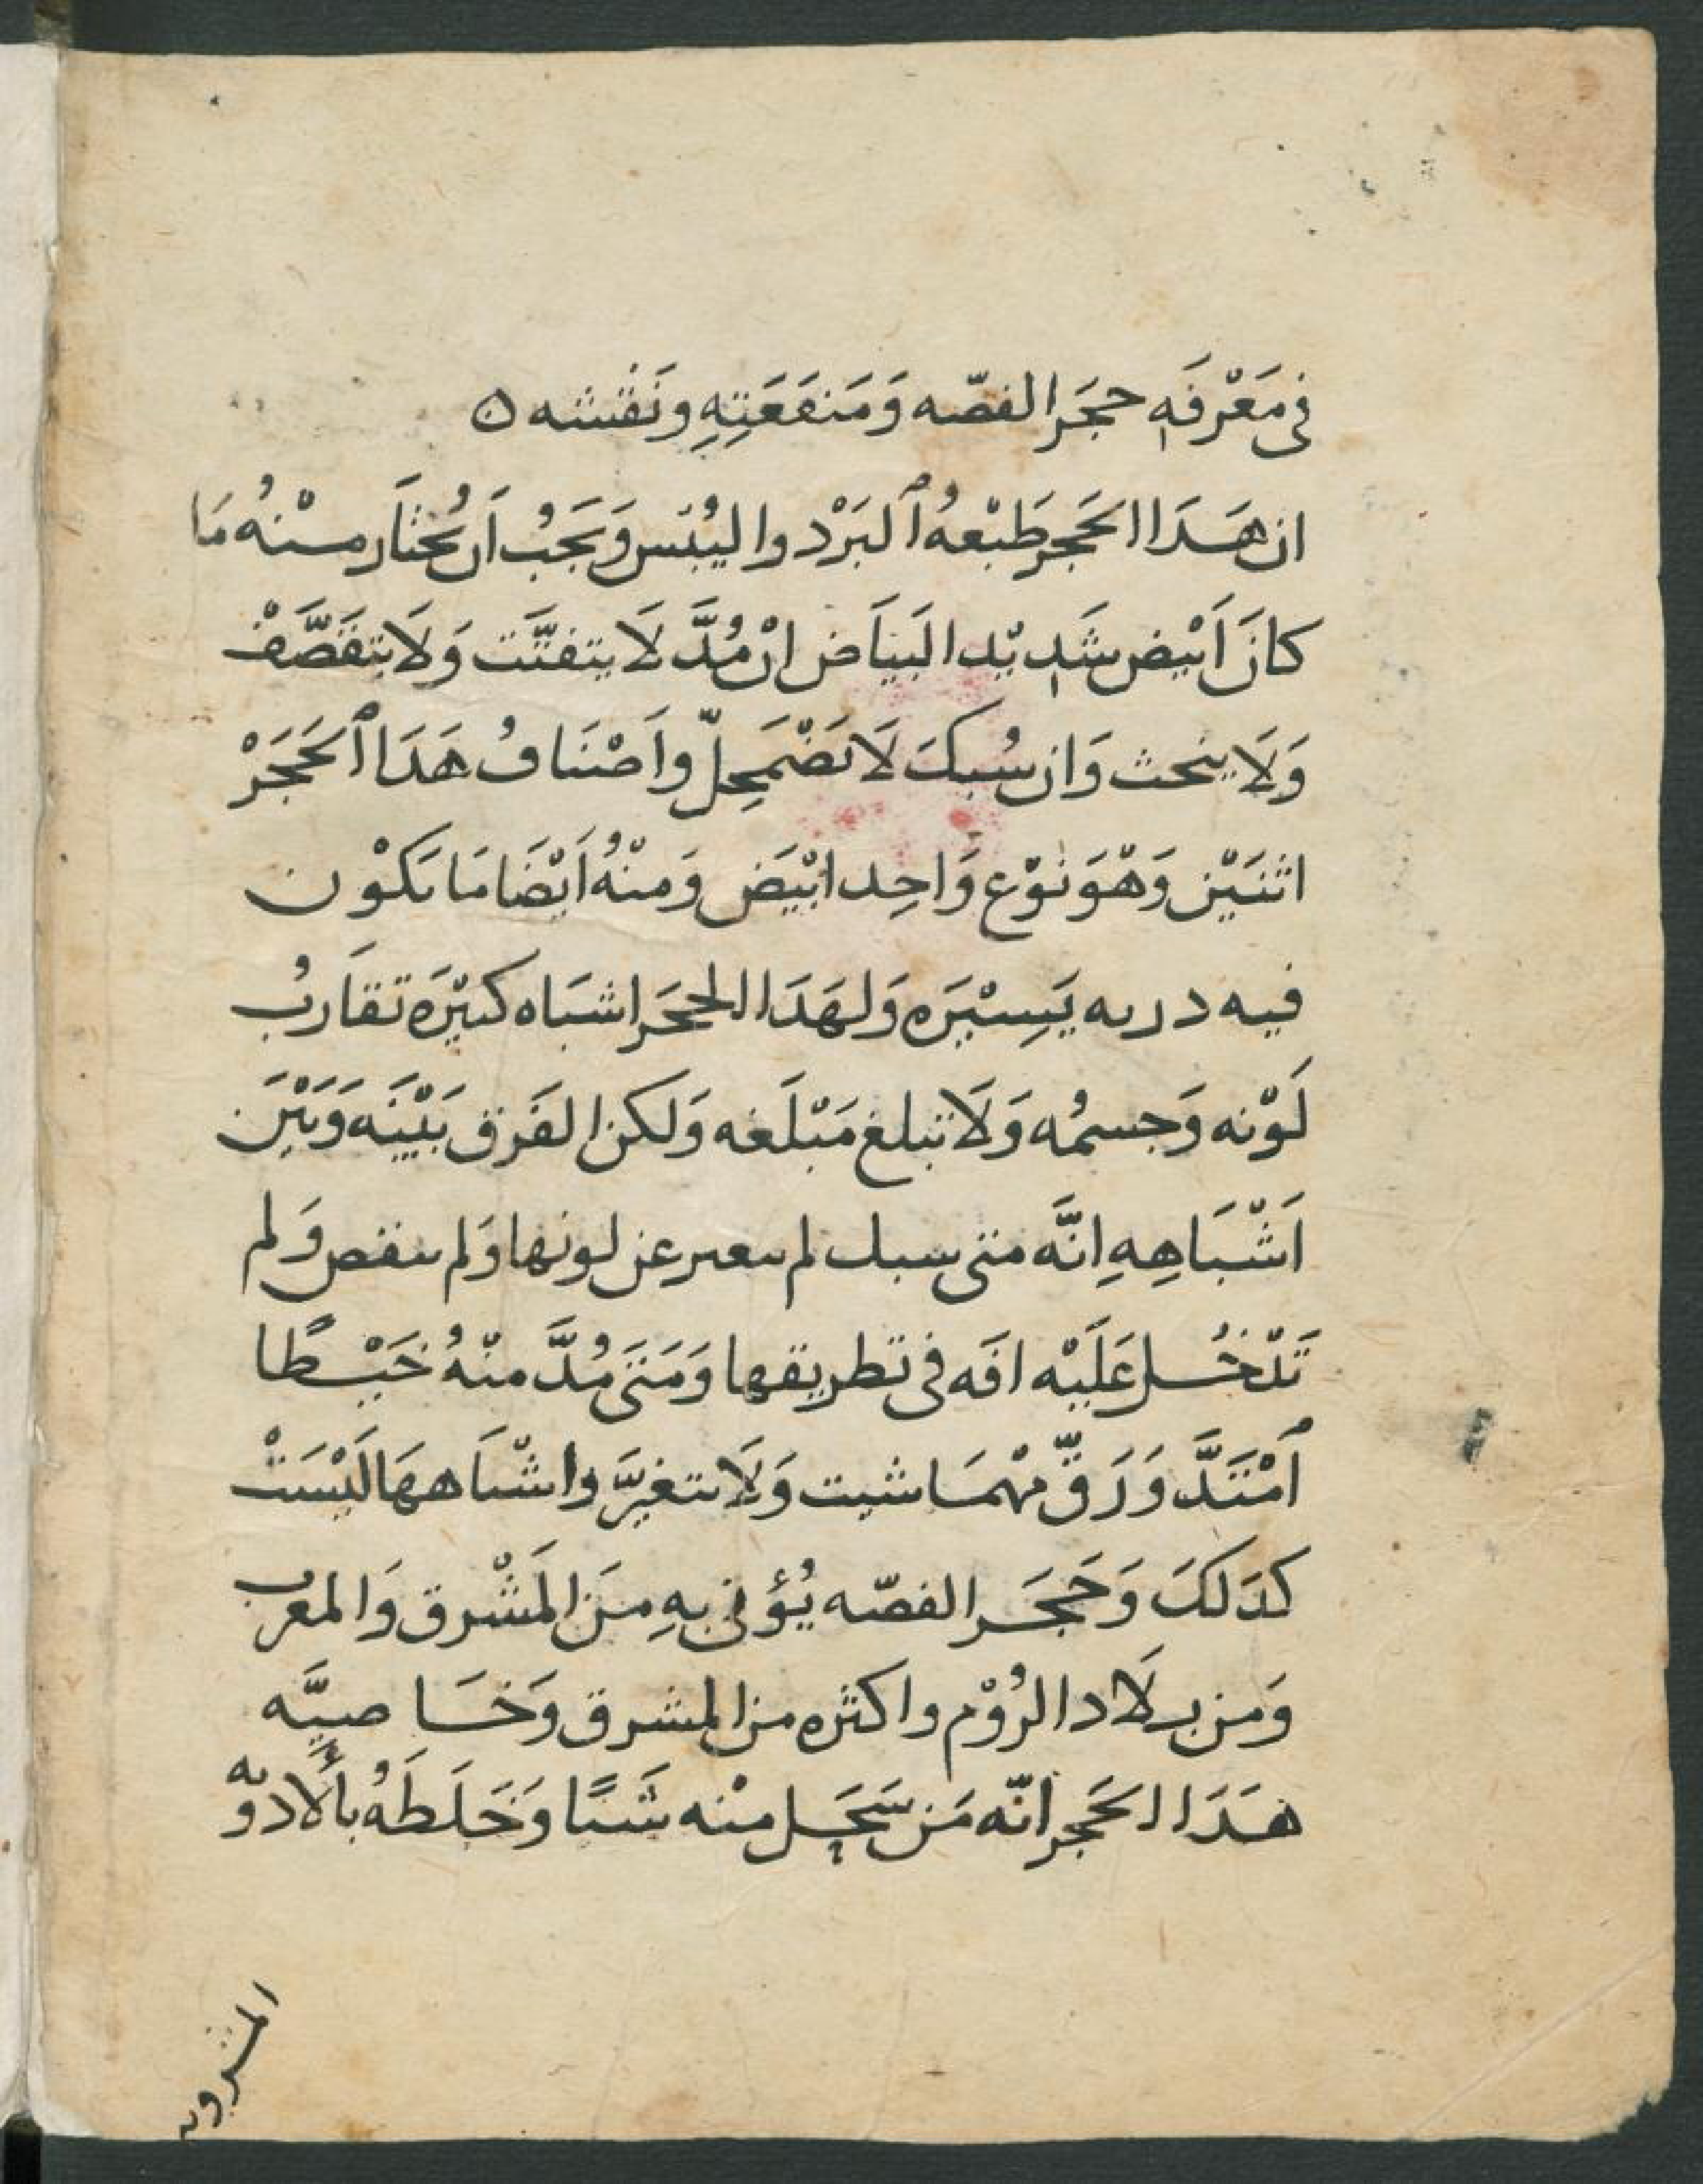 في مَعْرفَه حجَر الفضّه وَمَنفَعَتِهِ ونَقْشه
ان هَدَا الحَجر طَبْعهُ اَلبَرْد واليُبْس وَيَجَبُ اَن يُختَار منْهُ مَا
كانَ اَبْيض شَديْد البيَاض انْ مُدَّ لَا يتفتَّت وَلَا يتقَصَّفْ
وَلَا ينحث وَان سُبكَ لَا يَضْمَحِلّ واَصْنَافُ هَدَا اَلحَجَرْ
اثنَيْن وَهْوَ نوْع وَاحِد ابْيَض وَمنْهُ اَيْضَا مَا يَكوْن
فيه دربه يَسِيْرَه وَلهَدَا الحجَر اشبَاه كتيْرَه تقَاربُ
لَوْنه وَجسمُه وَلَا تبلغ مَبْلَغه وَلكن الفَرْق بَيْنَه وَبَيْنَ
اَشْبَاهِهِ اِنَّه متى سبك لم يتغير عن لونها وَلم ينقص وَلم
تَدْخُل عَلَيْه افَه في تطريقها وَمَتَى مُدَّ منْهُ خَيْطًا
اَمْتَدَّ وَرَقّ مهْمَا شيت وَلَا يتغيَّر واشبَاههَا لَيْسَتْ
كدَلكَ وَحَجَر الفضّه يُؤتى بهِ مِنَ المَشْرق وَالمغرب
وَمن بلَاد الرُوْم واكثره من المشرق وَخَاصيَّه
هَدَا الحَجر انّه مَن سَحَل منْه شَيًا وَخَلَطَهُ بألَادوْيه
المشروبه